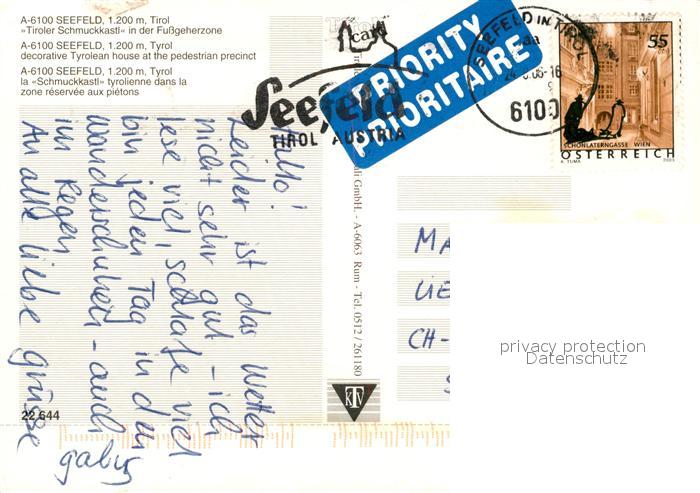 A-6100 SEEFELD, 1.200 m, Tirol
»Tiroler Schmuckkastl« in der Fußgeherzone
A-6100 SEEFELD, 1.200 m, Tyrol
decorative Tyrolean house at the pedestrian precinct
A-6100 SEEFELD, 1.200 m, Tyrol
la «Schmuckkastl» tyrolienne dans la
zone réservée aux piétons
Seefeld
TIROL AUSTRIA
PRIORITY
PRIORITAIRE
SEEFELD IN TIROL
6100
55
SCHÖNLATERNGASSE WIEN
ÖSTERREICH
Hallo!
Leider ist das Wetter
nicht sehr gut - ich
lese viel, schlafe viel
bin jeden Tag in den
Wanderschuhen - auch
im Regen
An alle liebe Grüsse
Gaby
GmbH. - A-6063 Rum - Tel. 0512 / 261180
KTV
22 644
MA
LIE
CH-
privacy protection
Datenschutz